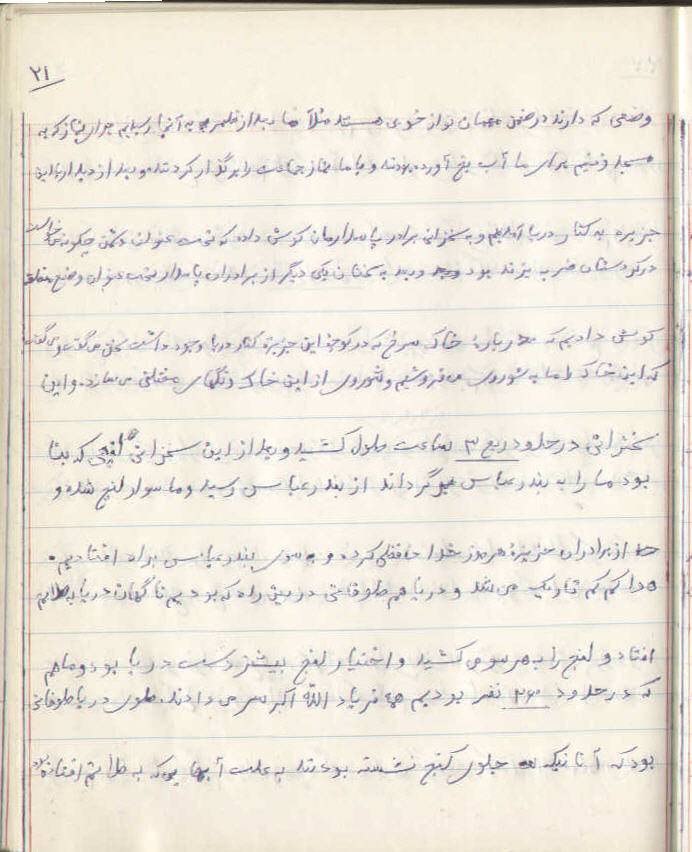 ۲۱
وضعی که دارند در ضمن مهمان نواز خوبی هستند مثلاً ما بعد از ظهر که به آنجا رسیدیم برای نماز که به
مسجد رفتیم برای ما آب یخ آورده بودند و با ما نماز جماعت را برگذار کردند و بعد از دیدار با این
جزیره به کنار دریا آمدیم و به سخنرانی برادر پاسدارمان گوش داده که تحت عنوان دشمن چگونه می‌خواست
در کردستان ضربه بزند بود و بعد به سخنان یکی دیگر از برادران پاسدار تحت عنوان وضع منطقه
گوش دادیم که درباره خاک سرخ که در کوه این جزیره کنار دریا وجود داشت سخن می‌گفت و می‌گفت
که این خاک را ما به شوروی می‌فروشیم و شوروی از این خاک رنگهای مختلفی می‌سازد. و این
سخنرانی در حدود ربع ۳ ساعت طول کشید و بعد از این سخنرانی لنجی که بنا
بود ما را به بندر عباس برگرداند از بندر عباس رسید و ما سوار لنج شده و
از برادران جزیرهٔ هرمز خدا حافظی کرده و به سوی بندر عباس براه افتادیم.
هوا کم کم تاریک می شد و دریا هم طوفانی در بین راه که بودیم ناگهان دریا به طلاطم
افتاد و لنج را به هر سو می کشید و اختیار لنج بیشتر دست دریا بود و ما هم
که در حدود ۲۶۰ نفر بودیم فریاد الله اکبر سر می دادند. طوری دریا طوفانی
بود که آنانیکه جلوی لنج نشسته بودند به علت آبها که به طلاطم افتاده بود